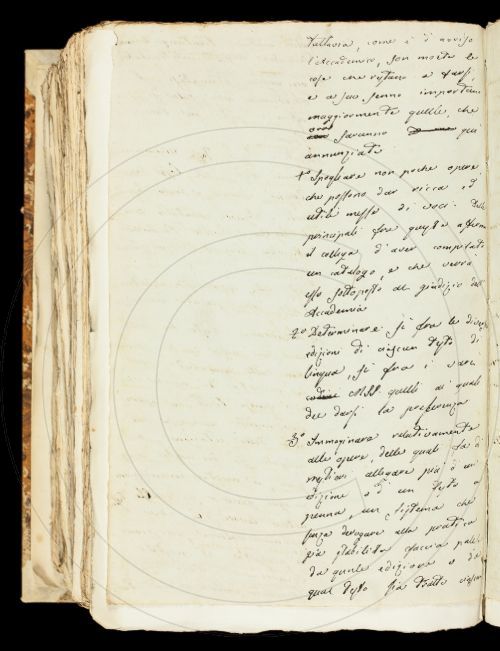 Tuttavia, come è d'avviso
l'Accademico, son molte le
cose che restano a farsi,
e a suo senno importano
maggiormente quelle, che
saranno qui
annunziate
1° Spogliare non poche opere
che possono dar ricca, ed
utile messe di voci. Delle
principali fra queste afferma
il collega d'aver compilato
un catalogo, e che verrà
esso sottoposto al giudizio dell'
Accademia
2° Determinare sì fra le diverse
edizioni di ciascun testo di
lingua, sì fra i vari
codici MSS. quelli ai quali
dee darsi la preferenza
3° Immaginare relativamente
alle opere, delle quali fa di
mestieri allegare più d'un'
edizione o d'un testo a
penna, un sistema che
senza derogare alla pratica
già stabilita faccia palese
da quale edizione o da
qual testo sia tratto ciascun